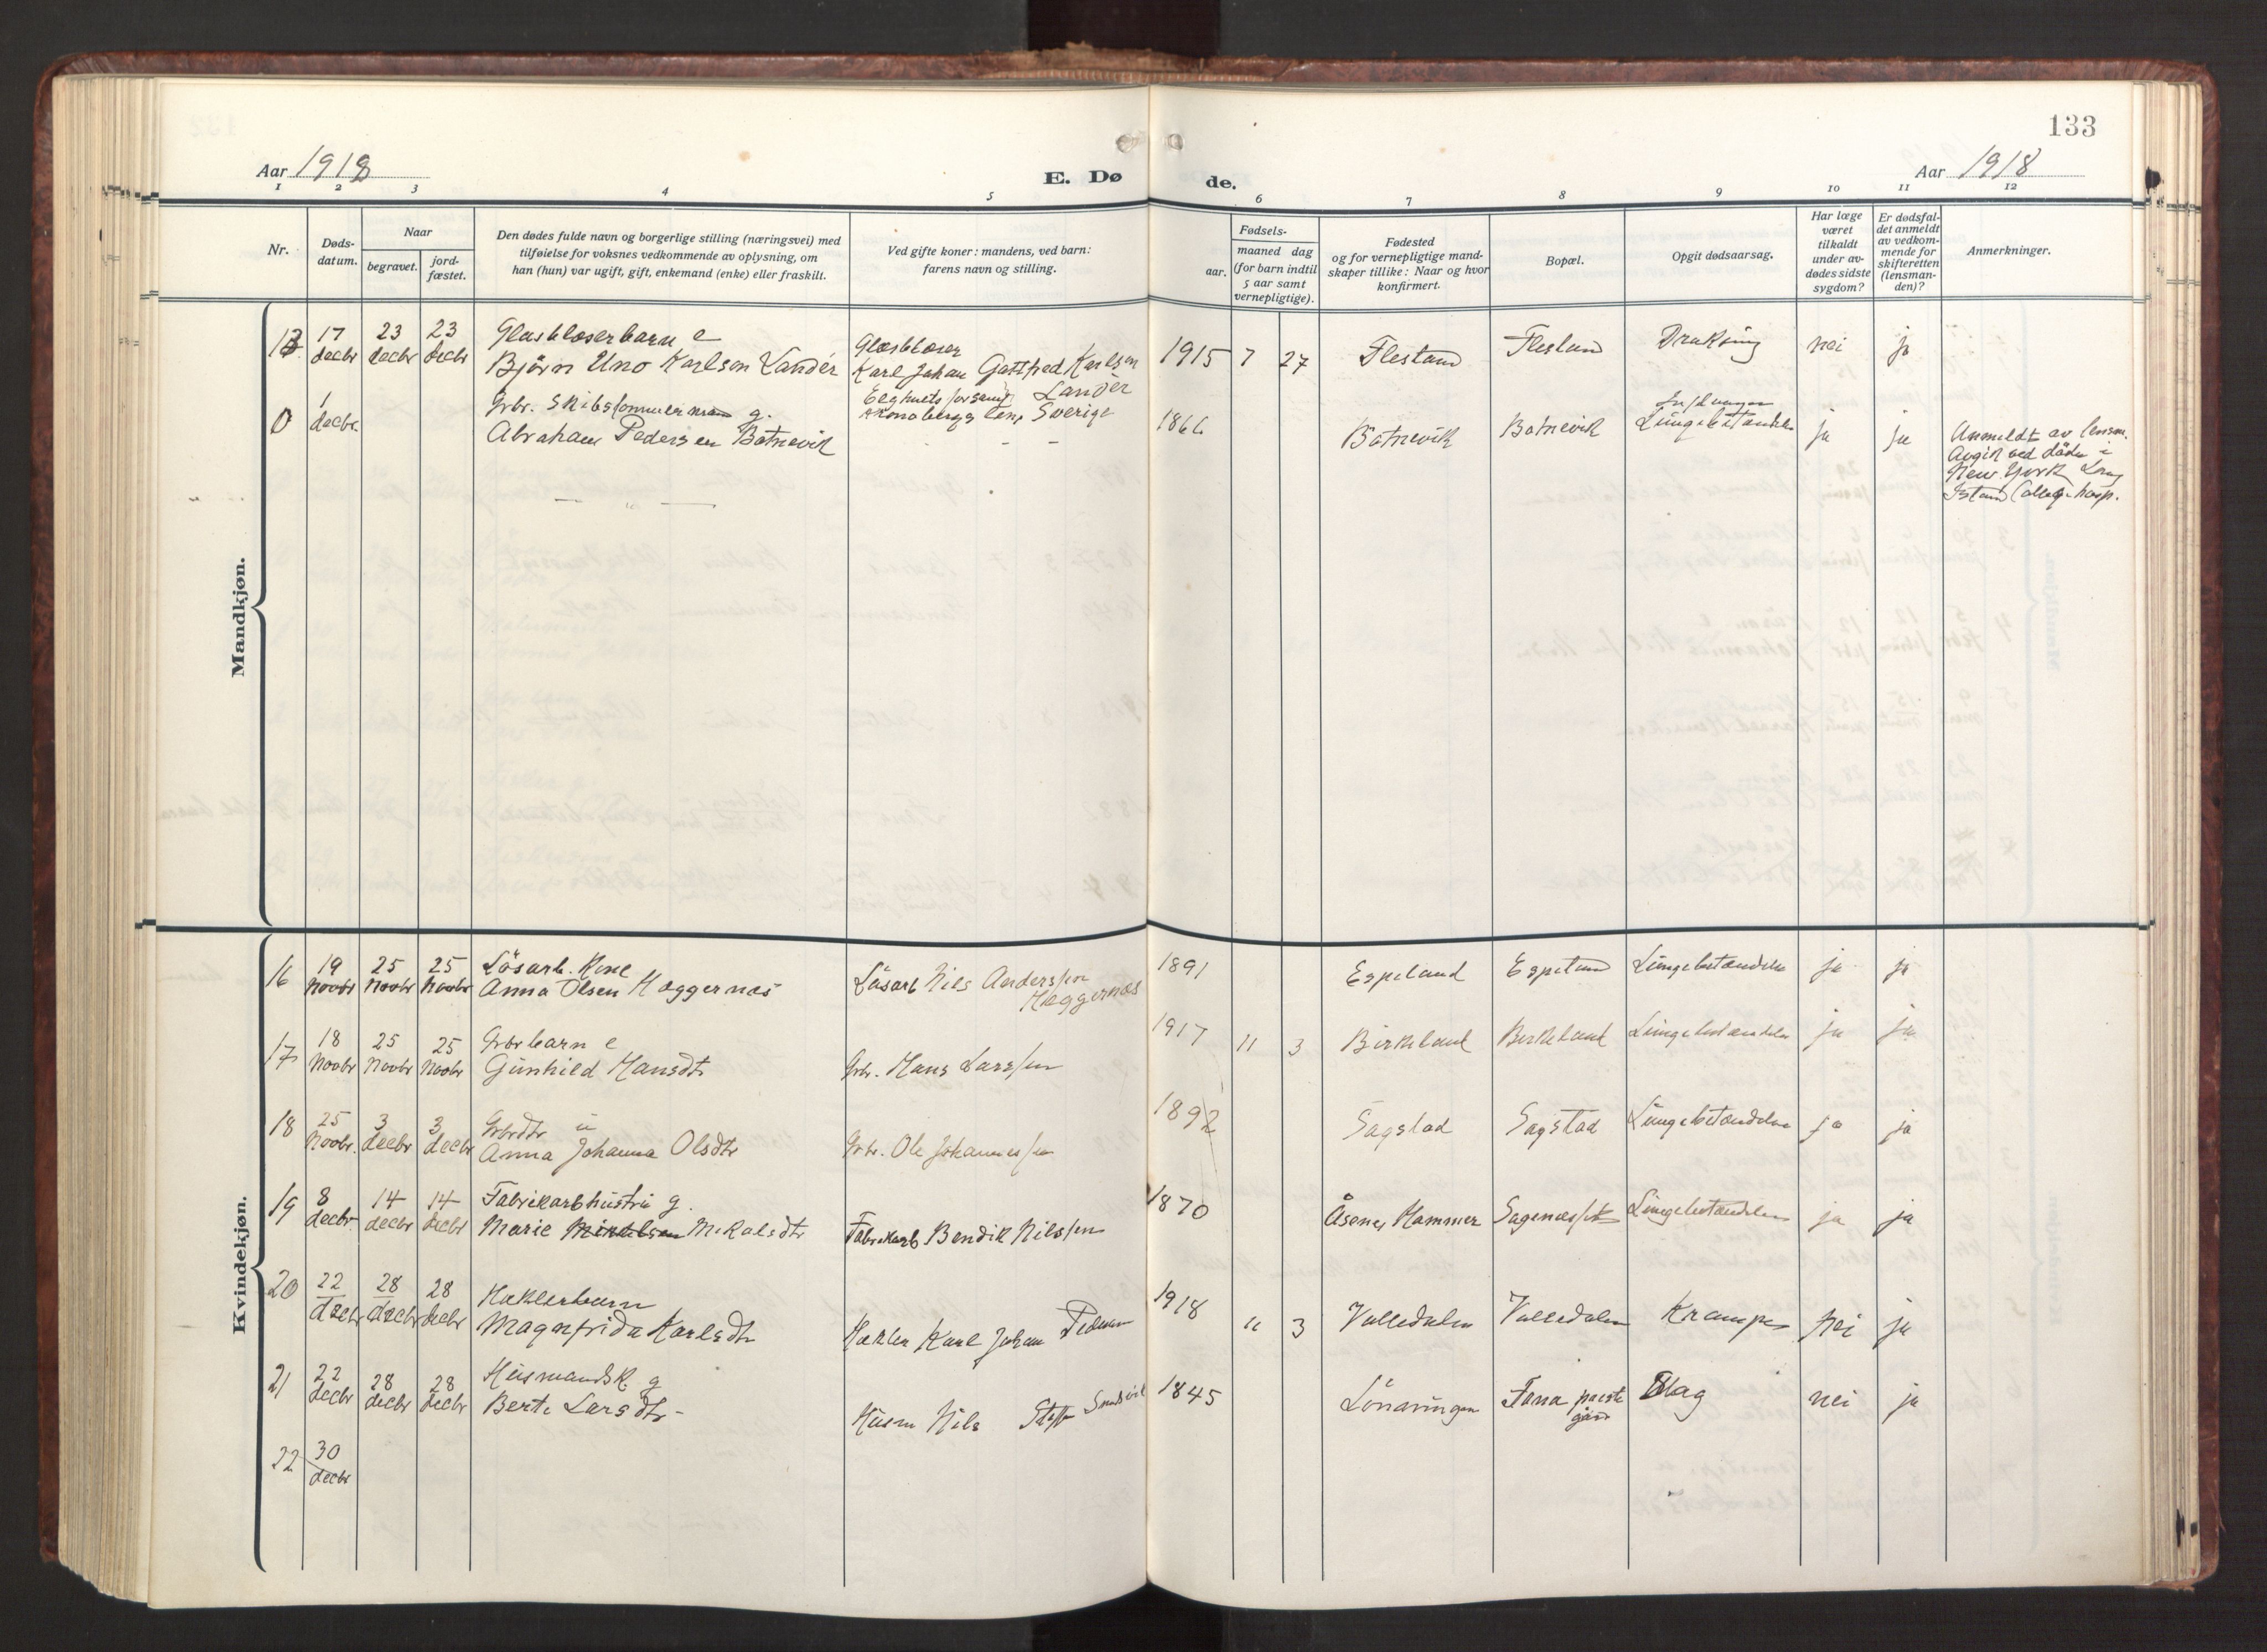 133
Aar 1918
E. Dø
de.
Aar 1918
1 2 3 4 5 6 7 8 9 10 11 12
Nr.
Døds-
datum.
Naar
begravet.
jord-
fæstet.
Den dødes fulde navn og borgerlige stilling (næringsvei) med
tilføielse for voksnes vedkommende av oplysning, om
han (hun) var ugift, gift, enkemand (enke) eller fraskilt.
Ved gifte koner: mandens, ved barn:
farens navn og stilling.
Fødsels-
aar.
maaned dag
(for barn indtil
5 aar samt
vernepligtige).
Fødested
og for vernepligtige mand-
skaper tillike: Naar og hvor
konfirmert.
Bopæl.
Opgit dødsaarsag.
Har læge
været
tilkaldt
under av-
dødes sidste
sygdom?
Er dødsfal-
det anmeldt
av vedkom-
mende for
skifteretten
(lensman-
den)?
Anmerkninger.
Mandkjøn.
13
17
decbr
23
decbr
23
decbr
Glasblæserbarn e
Björn Uno Karlson Landér
Glasblæser
Karl Johan Gottfred Karlsen
Landér
Kronobergs len, Sverige
1915 7 27
Flesland
Flesland
Drukning
nei
ja
0
1
decbr.
Grbr. Skibstømmermand g.
Abraham Pedersen Botnevik
- - -
1866
Botnevik
Botnevik
Lungebetændelse
ja
ja
Anmeldt av lensm.
Avgik ved døden i
New York Long
Island College hosp.
— " —
Kvindekjøn.
16
19
Novbr
25
Novbr
25
Novbr
Løsarb. Kone
Anna Olsen Haggernæs
Løsarb Nils Anderssen
Haggernæs
1891
Espeland
Espeland
Lungebetændelse
ja
ja
17
18
Novbr
25
Novbr
25
Novbr
Grbrbarn e
Gunhild Hansdtr
Grbr. Hans Larssen
1917 11 3
Birkeland
Birkeland
Lungebetændelse
ja
ja
18
25
Novbr.
3
decbr
3
decbr
Grbrdtr u
Anna Johanna Olsdtr
Grbr. Ole Johannessen
1892
Sagstad
Sagstad
Lungebetændelse
ja
ja
19
8
decbr
14
decbr
14
decbr
Fabrikarbhustru g.
Marie Mikkelsen Mikalsdtr
Fabrikarb Bendik Nilssen
1870
Åsenes Hammer
Lungebetændelse
ja
ja
20
22
decbr
28
decbr
28
decbr
Hæklerbarn
Magnfrida Karlsdtr
Hækler Karl Johan Pedersen
1918 11 3
Valledalen
Valledalen
Krampe
nei
ja
21
22
decbr
28
decbr
28
decbr
Husmandsk. g
Berte Larsdtr
Husm Nils
1845
Lönningen
Fana preste
gård
Slag
nei
ja
22
30
decbr